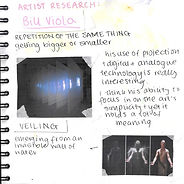 ARTIST RESEARCH:
Bill Viola
REPETITION OF THE SAME THING
getting bigger or smaller
his use of projection
+ digital + analogue
technology is really
interesting
I think his ability to
focus in on one art's
simplicity yet it
holds a for
meaning
VEILING
emerging from an
invisible wall of
water